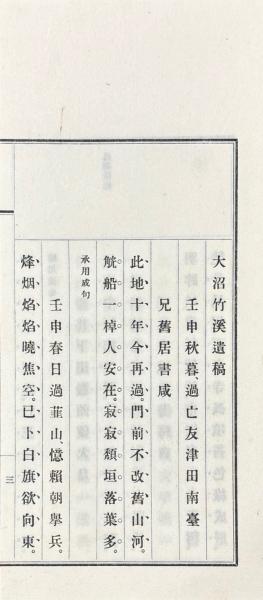 大沼竹溪遺稿
壬申秋暮、過亡友津田南臺
兄舊居書感
此地十年今再過。門前不改舊山河。
觥船一棹人安在。寂寂頽垣落葉多。
承用成句
壬申春日過韮山、憶賴朝擧兵。
烽烟焰焰曉焦空。已卜白旗欲向東。
三